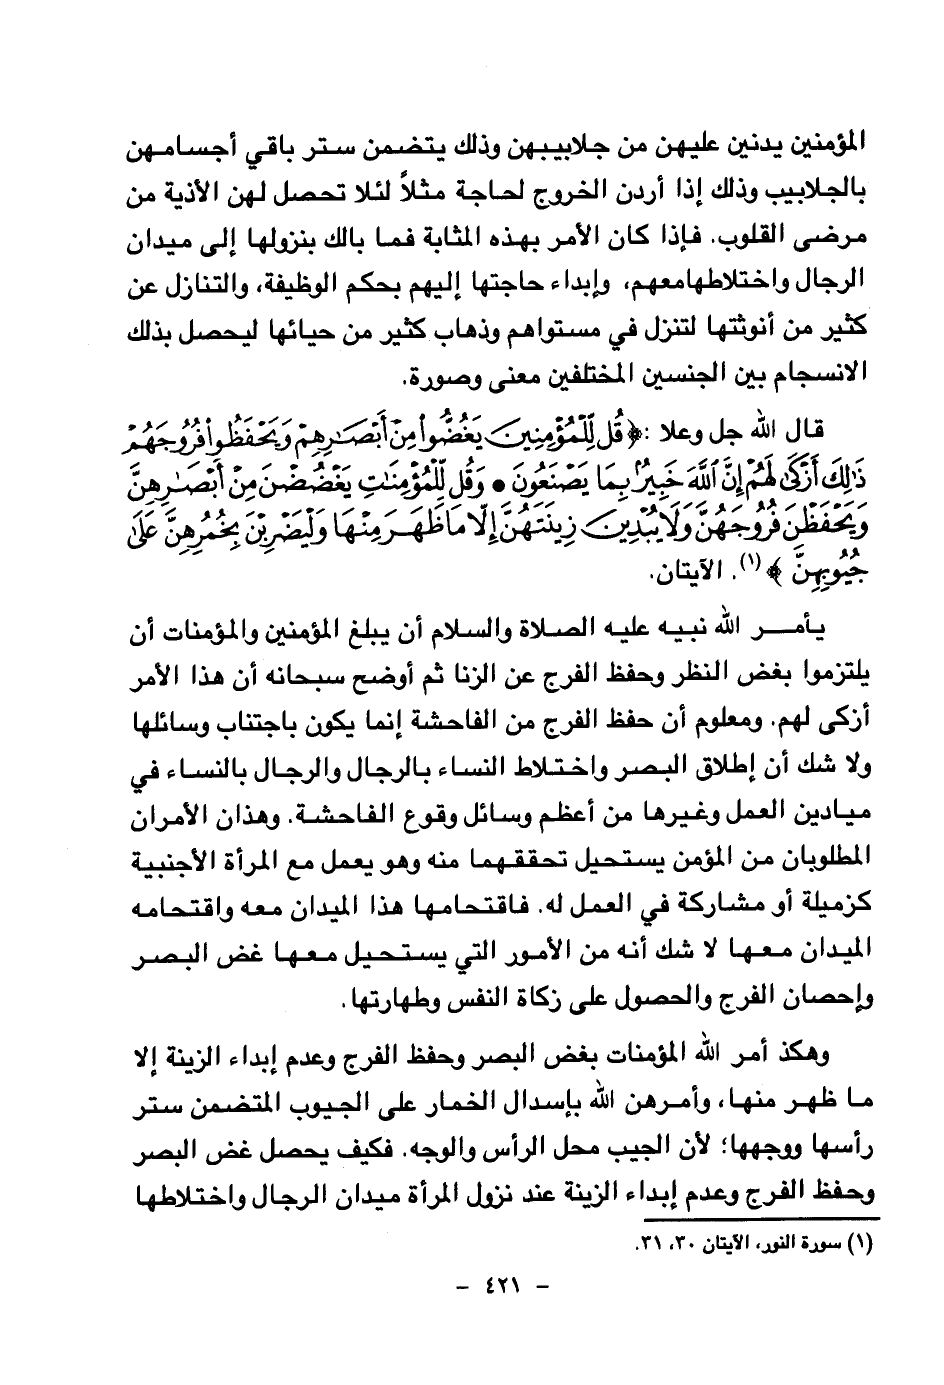 المؤمنين يدنين عليهن من جلابيبهن وذلك يتضمن ستر باقي أجسامهن
بالجلابيب وذلك إذا أردن الخروج لحاجة مثلاً لئلا تحصل لهن الأذية من
مرضى القلوب. فإذا كان الأمر بهذه المثابة فما بالك بنزولها إلى ميدان
الرجال واختلاطهامعهم، وإبداء حاجتها إليهم بحكم الوظيفة، والتنازل عن
كثير من أنوثتها لتنزل في مستواهم وذهاب كثير من حيائها ليحصل بذلك
الانسجام بين الجنسين المختلفين معنى وصورة.
قال الله جل وعلا :﴿ قُل لِّلْمُؤْمِنِينَ يَغُضُّوا۟ مِنْ أَبْصَـٰرِهِمْ وَيَحْفَظُوا۟ فُرُوجَهُمْ
ذَٰلِكَ أَزْكَىٰ لَهُمْ إِنَّ ٱللَّهَ خَبِيرٌۢ بِمَا يَصْنَعُونَ • وَقُل لِّلْمُؤْمِنَـٰتِ يَغْضُضْنَ مِنْ أَبْصَـٰرِهِنَّ
وَيَحْفَظْنَ فُرُوجَهُنَّ وَلَا يُبْدِينَ زِينَتَهُنَّ إِلَّا مَا ظَهَرَ مِنْهَا وَلْيَضْرِبْنَ بِخُمُرِهِنَّ عَلَىٰ
جُيُوبِهِنَّ ﴾(١). الآيتان.
يأمــر الله نبيه عليه الصلاة والسلام أن يبلغ المؤمنين والمؤمنات أن
يلتزموا بغض النظر وحفظ الفرج عن الزنا ثم أوضح سبحانه أن هذا الأمر
أزكى لهم. ومعلوم أن حفظ الفرج من الفاحشة إنما يكون باجتناب وسائلها
ولا شك أن إطلاق البصر واختلاط النساء بالرجال والرجال بالنساء في
ميادين العمل وغيرها من أعظم وسائل وقوع الفاحشة. وهذان الأمران
المطلوبان من المؤمن يستحيل تحققهما منه وهو يعمل مع المرأة الأجنبية
كزميلة أو مشاركة في العمل له. فاقتحامها هذا الميدان معه واقتحامه
الميدان معها لا شك أنه من الأمور التي يستحيل معها غض البصر
وإحصان الفرج والحصول على زكاة النفس وطهارتها.
وهكذ أمر الله المؤمنات بغض البصر وحفظ الفرج وعدم إبداء الزينة إلا
ما ظهر منها، وأمرهن الله بإسدال الخمار على الجيوب المتضمن ستر
رأسها ووجهها؛ لأن الجيب محل الرأس والوجه. فكيف يحصل غض البصر
وحفظ الفرج وعدم إبداء الزينة عند نزول المرأة ميدان الرجال واختلاطها
(١) سورة النور، الآيتان ٣٠، ٣١.
- ٤٢١ -